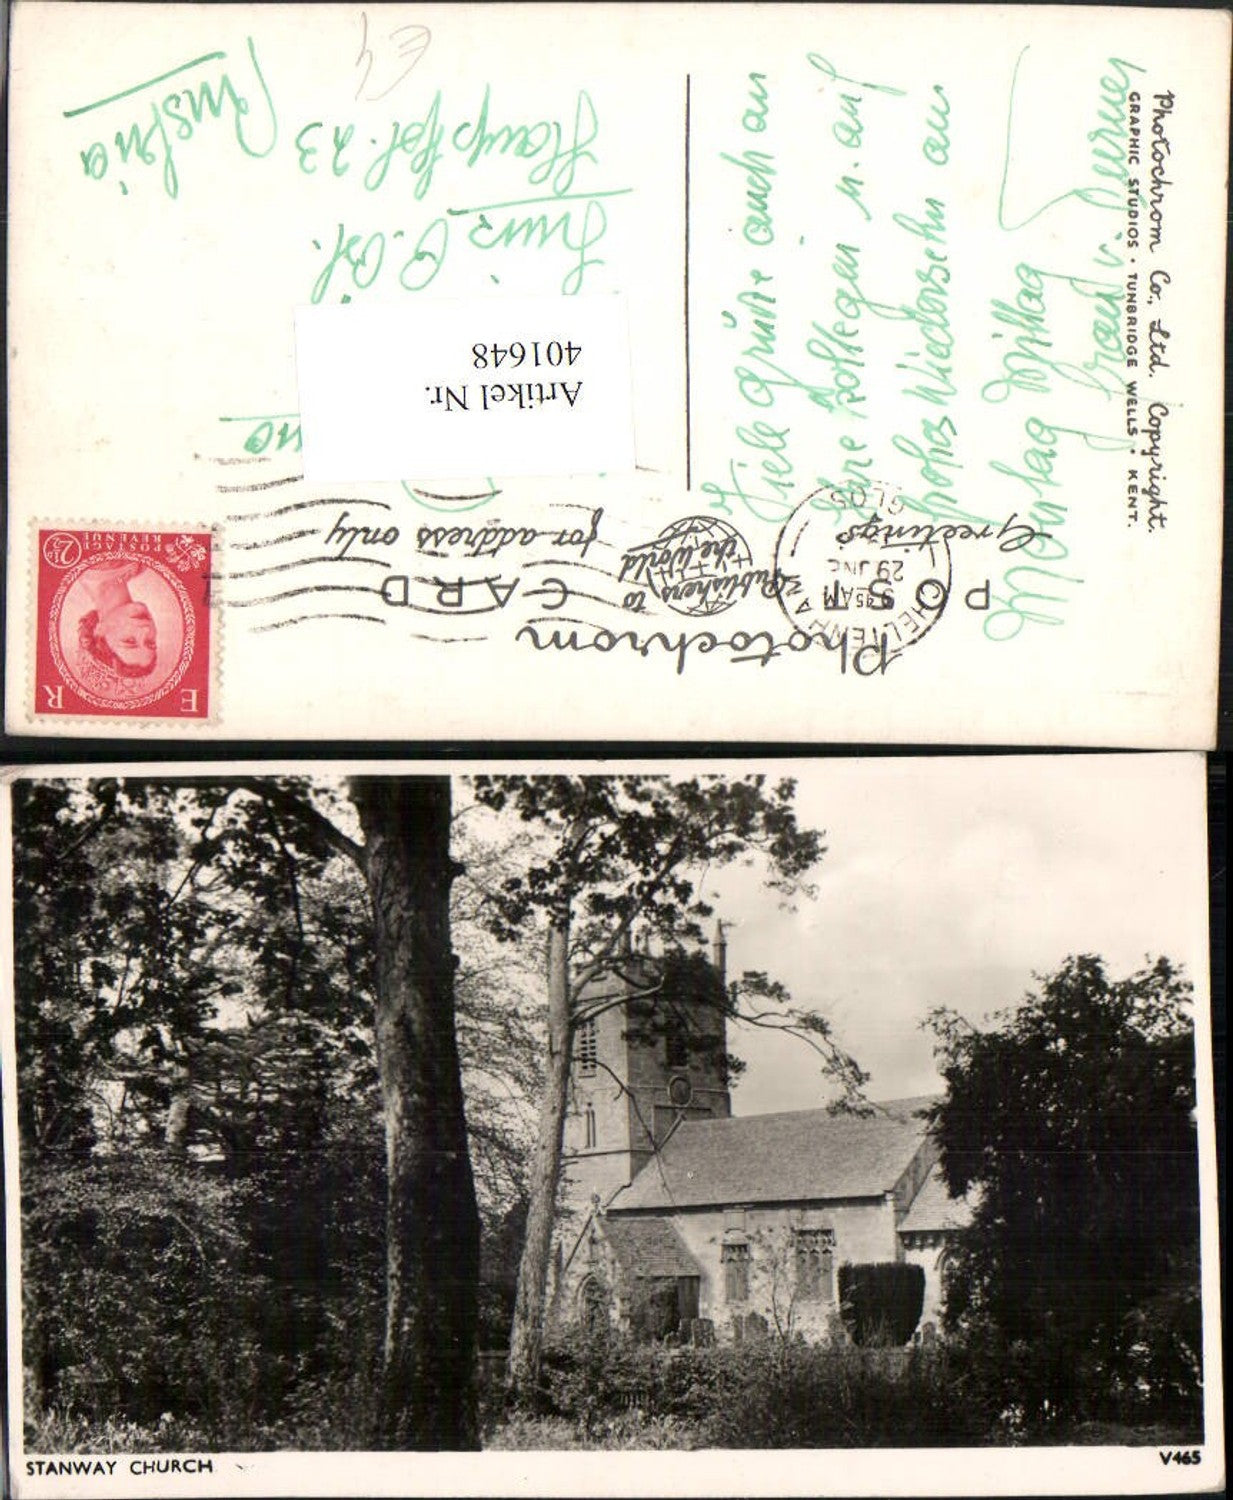 Photochrom
POST CARD
Publishers to
the World
Greetings
for address only
CHELTENHAM
9.45AM
29 JNE
GLOS
E R
POSTAGE
REVENUE
2½D
Photochrom Co., Ltd. Copyright.
GRAPHIC STUDIOS • TUNBRIDGE WELLS • KENT.
Viele Grüße auch an
Ihre Kollegen u. auf
frohes Wiedersehn am
Montag Mittag
Artikel Nr.
401648
Linz
Hauptpl. 23
Austria
STANWAY CHURCH
V465